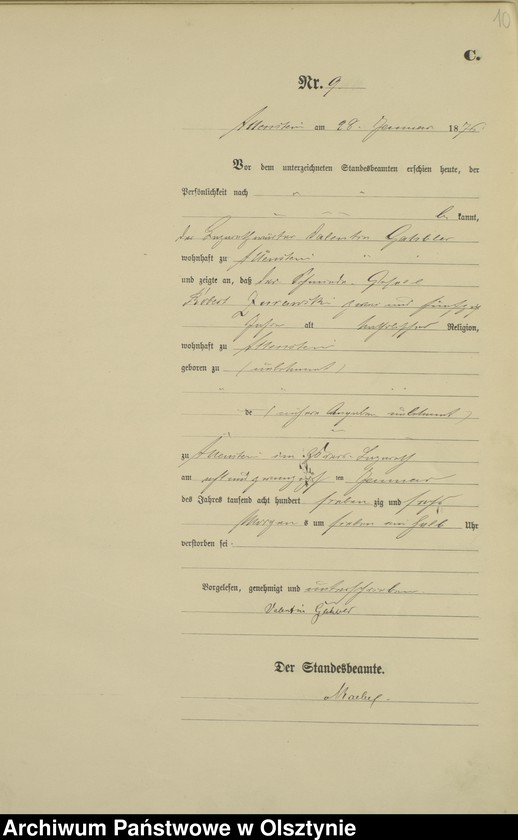 10
C.
Nr. 9
Allenstein am 28. Januar 1876
Vor dem unterzeichneten Standesbeamten erschien heute, der
Persönlichkeit nach
be kannt,
der Lazarethwärter Valentin
wohnhaft zu Allenstein
und zeigte an, daß der Schneider-Gesell
Robert zwei und fünfzig
Jahre alt katholischer Religion,
wohnhaft zu Allenstein
geboren zu (unbekannt)
de (nähere Angaben unbekannt)
zu Allenstein im Lazareth
am acht und zwanzig ten Januar
des Jahres tausend acht hundert sieben zig und sechs
Morgen s um sieben ein halb Uhr
verstorben sei.
Vorgelesen, genehmigt und unterschrieben
Valentin
Der Standesbeamte.
Archiwum Państwowe w Olsztynie